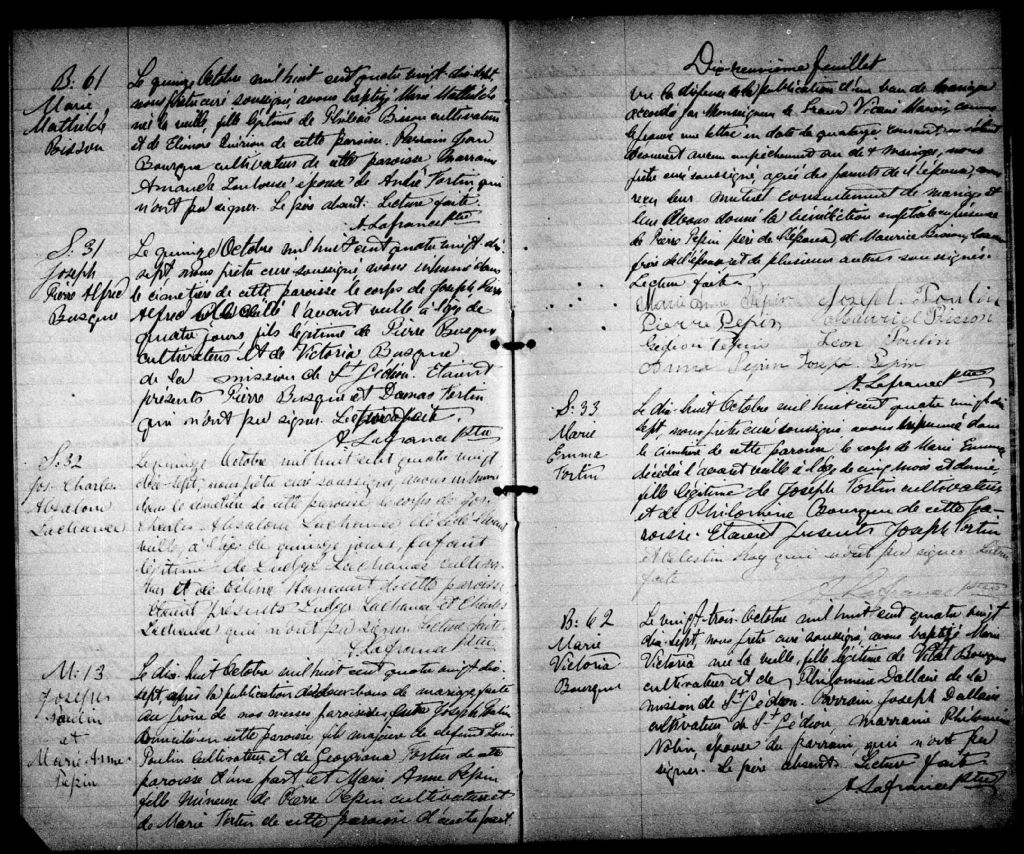 B: 61
Marie
Mathilde
Bisson
Le quinze Octobre mil huit cent quatre vingt dix-sept,
nous prêtre curé soussigné, avons baptizé Marie Mathilde
née la veille, fille légitime de Philéas Bisson cultivateur
et de Elénore Quirion de cette paroisse. Parrain Jean
Bourque cultivateur de cette paroisse Marraine
Amanda épouse de André Fortin qui
n'ont pu signer. Le père absent. Lecture faite.
A. Lafrance Ptre
S. 31
Joseph
Pierre Alfred
Busque
Le quinze Octobre mil huit cent quatre vingt dix
sept nous prêtre curé soussigné, avons inhumé dans
le cimetière de cette paroisse le corps de Joseph Pierre
Alfred décédé l'avant veille à l'âge de
quatre jours fils légitime de Pierre Busque
cultivateur et de Victoria Busque
de la mission de St Gédéon. Etaient
présents Pierre Busque et Damas Fortin
qui n'ont pu signer. Lecture faite.
A. Lafrance Ptre
S. 32
Jos. Charles
Absalom
Lachance
Le quinze Octobre mil huit cent quatre vingt
dix-sept, nous prêtre curé soussigné, avons inhumé
dans le cimetière de cette paroisse le corps de Jos.
Charles Absalom Lachance décédé l'avant
veille, à l'âge de quinze jours, enfant
légitime de Ludger Lachance cultiva-
teur et de Céline de cette paroisse
Etaient présents Ludger Lachance et Charles
Lachance qui n'ont pu signer. Lecture faite
A. Lafrance Ptre
M: 13
Joseph
Poulin
et
Marie Anne
Pépin
Le dix-huit Octobre mil huit cent quatre vingt dix-
sept, après la publication de deux bans de mariage faite
au prône de nos messes paroissiales, entre Joseph Poulin
domicilié en cette paroisse fils majeur de défunt Louis
Poulin cultivateur et de Georgiana Fortin de cette
paroisse d'une part, et Marie Anne Pépin
fille mineure de Pierre Pépin cultivateur et
de Marie Fortin de cette paroisse d'autre part.
Dix-neuvième feuillet
vu la dispense de la publication d'un ban de mariage
accordée par Monseigneur le Grand Vicaire Marois, comme
le prouve une lettre en date du quatorze courant, ne s'étant
découvert aucun empêchement au dit mariage, nous
prêtre curé soussigné, agréé des parents de l'épouse, avons
reçu leur mutuel consentement de mariage et
leur avons donné la bénédiction nuptiale en présence
de Pierre Pépin père de l'épouse, et Maurice Bisson, beau
frère de l'époux et de plusieurs autres soussignés.
Lecture faite.
Marie Anne Pépin Joseph Poulin
Pierre Pepin
Gédéon Pépin Léon Poulin
Anna Pépin Joseph Pépin
A. Lafrance Ptre
S: 33
Marie
Emma
Fortin
Le dix-huit Octobre mil huit cent quatre vingt dix
sept, nous prêtre curé soussigné avons inhumé dans
le cimetière de cette paroisse le corps de Marie Emma
décédée l'avant veille à l'âge de cinq mois et demie,
fille légitime de Joseph Fortin cultivateur
et de Philomène Bourque de cette pa-
roisse. Etaient présents Joseph Fortin
et Célestin Roy qui n'ont pu signer. Lecture
faite
A. Lafrance Ptre
B: 62
Marie
Victoria
Bourque
Le vingt-trois Octobre mil huit cent quatre vingt
dix-sept, nous prêtre curé soussigné, avons baptizé Marie
Victoria née la veille, fille légitime de Vital Bourque
cultivateur et de Philomène Dallaire de la
mission de St Gédéon. Parrain Joseph Dallaire
cultivateur de St Gédéon, marraine Philomène
Nolin épouse du parrain, qui n'ont pu
signer. Le père absent. Lecture faite
A. Lafrance Ptre